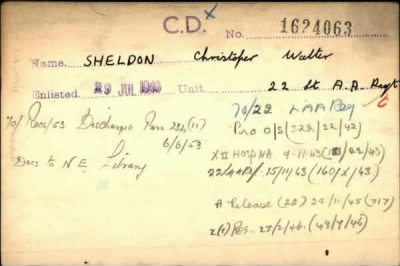 C.D. x
No. 1624063
Name SHELDON Christoper Walter
Enlisted 29 JUL 1940 Unit 22 Lt A.A. Regt
70/22 LAA Reg
70/ Rece/53 Discharge Para 204 (11)
6/6/53
Docs to N.E. Library
Pro O/S (328/22/42)
XII Hosp NA. 9-11-43 (22/43)
22/LAA Rgt. 15/11/43 (160/X/43)
A Release (22) 29/11/45 (717)
Res. 27/2/46. (49/9/46)